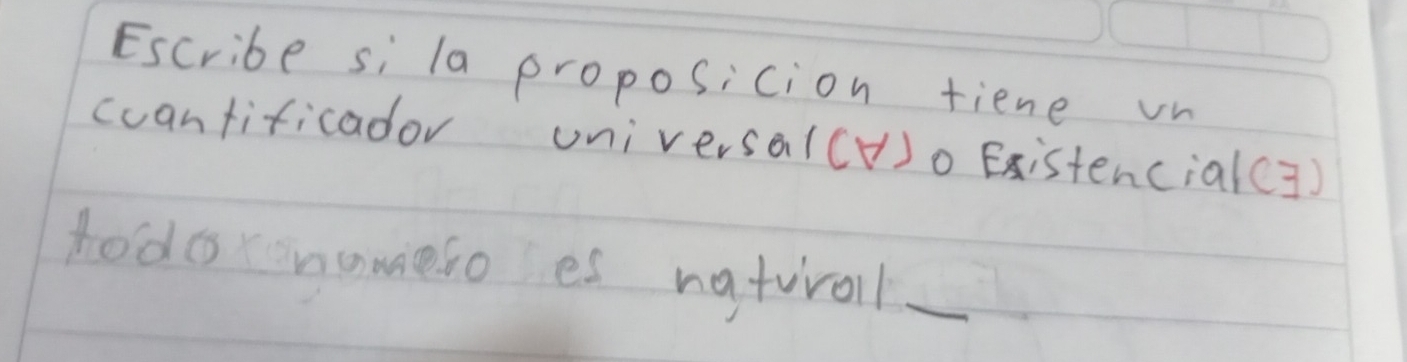 Escribe si la proposicion tiene un
cuantificador universal (∀) o Existencial (∃)
todo numero es natural _